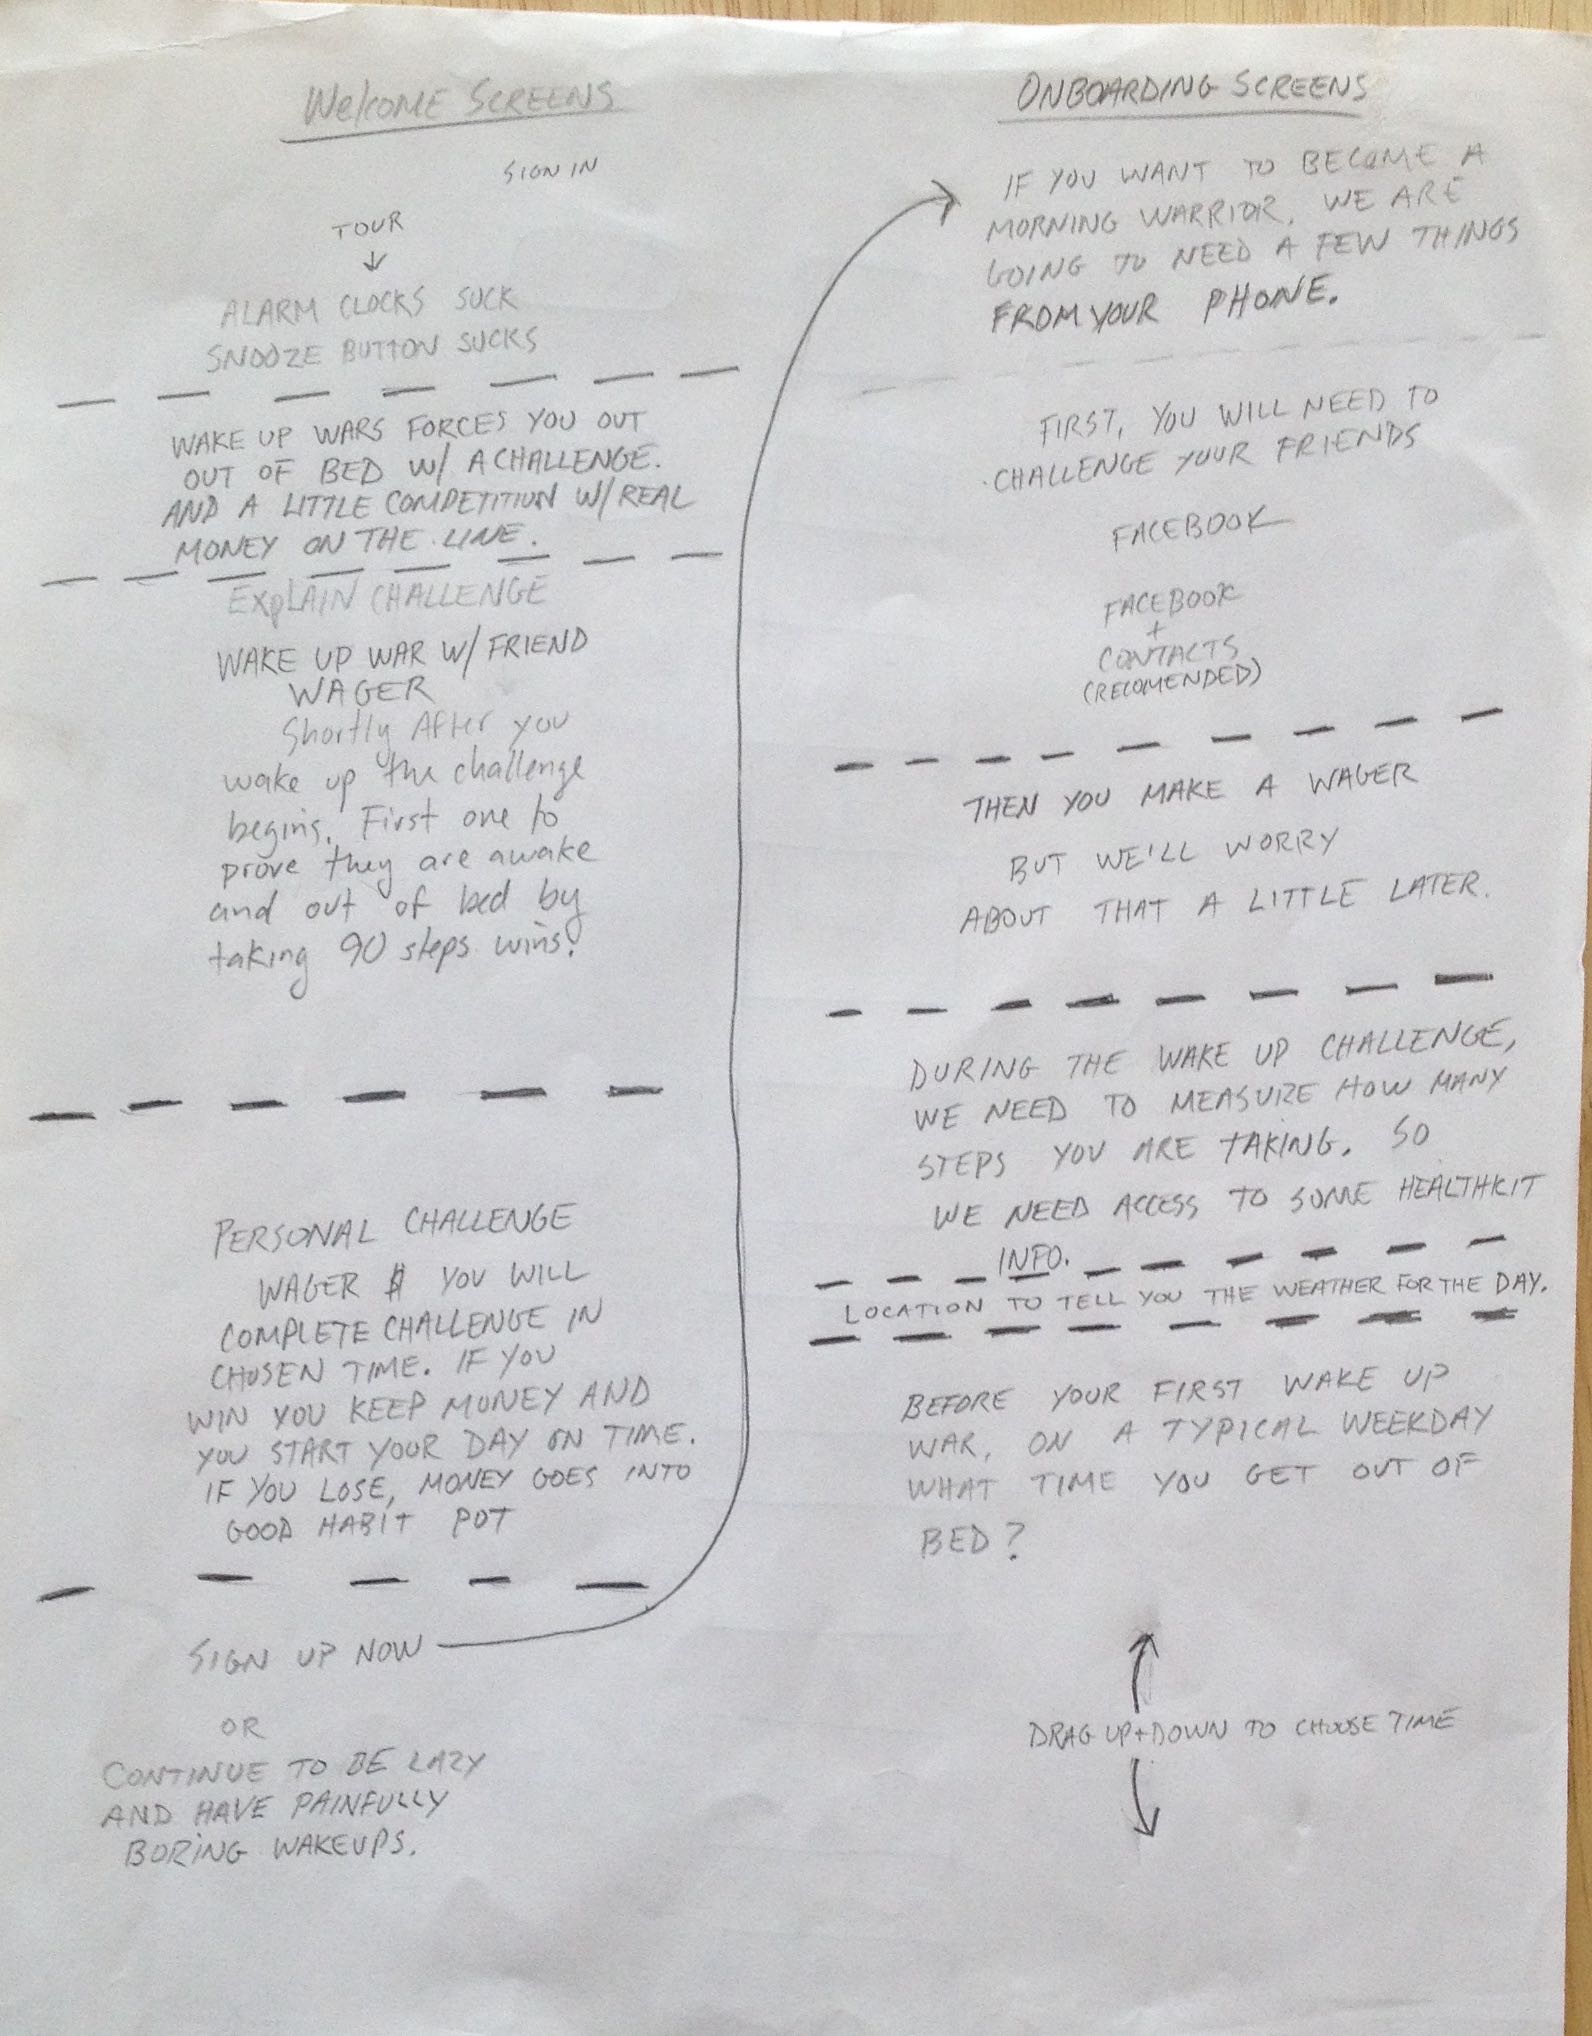 Welcome SCREENS
SIGN IN
TOUR
ALARM CLOCKS SUCK
SNOOZE BUTTON SUCKS
WAKE UP WARS FORCES YOU OUT
OUT OF BED W/ A CHALLENGE.
AND A LITTLE COMPETITION W/ REAL
MONEY ON THE LINE.
EXPLAIN CHALLENGE
WAKE UP WAR W/ FRIEND
WAGER
Shortly After you
wake up the challenge
begins. First one to
prove they are awake
and out of bed by
taking 90 steps wins.
PERSONAL CHALLENGE
WAGER $ YOU WILL
COMPLETE CHALLENGE IN
CHOSEN TIME. IF YOU
WIN YOU KEEP MONEY AND
YOU START YOUR DAY ON TIME.
IF YOU LOSE, MONEY GOES INTO
GOOD HABIT POT
SIGN UP NOW
OR
CONTINUE TO BE LAZY
AND HAVE PAINFULLY
BORING WAKEUPS.
ONBOARDING SCREENS
IF YOU WANT TO BECOME A
MORNING WARRIOR, WE ARE
GOING TO NEED A FEW THINGS
FROM YOUR PHONE.
FIRST, YOU WILL NEED TO
CHALLENGE YOUR FRIENDS
FACEBOOK
FACEBOOK
+
CONTACTS
(RECOMENDED)
THEN YOU MAKE A WAGER
BUT WE'LL WORRY
ABOUT THAT A LITTLE LATER.
DURING THE WAKE UP CHALLENGE,
WE NEED TO MEASURE HOW MANY
STEPS YOU ARE TAKING. SO
WE NEED ACCESS TO SOME HEALTHKIT
INFO.
LOCATION TO TELL YOU THE WEATHER FOR THE DAY.
BEFORE YOUR FIRST WAKE UP
WAR, ON A TYPICAL WEEKDAY
WHAT TIME YOU GET OUT OF
BED?
DRAG UP + DOWN TO CHOOSE TIME